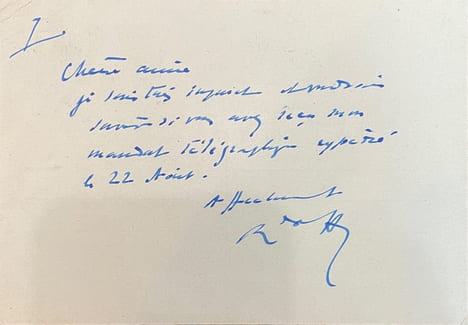 Chère amie
je suis très inquiet et voudrais
savoir si vous avez reçu mon
mandat télégraphique expédié
le 22 Août.
Affectueusement